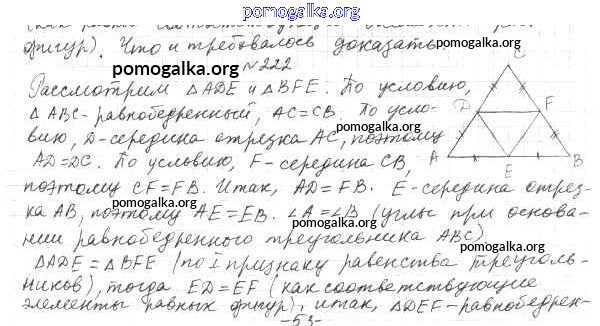 pomogalka.org
фигур). Что и требовалось доказать.
pomogalka.org
№222
pomogalka.org
Рассмотрим △ADE и △BFE. По условию,
△ABC-равнобедренный, AC=CB. По усло-
вию, D-середина отрезка AC, поэтому
AD=DC. По условию, F-середина CB,
поэтому CF=FB. Итак, AD=FB. E-середина отрез-
ка AB, поэтому AE=EB. ∠A=∠B (углы при основа-
нии равнобедренного треугольника ABC)
△ADE=△BFE (по I признаку равенства треуголь-
ников), тогда ED=EF (как соответствующие
элементы равных фигур), итак, △DEF-равнобедрен-
-53-
C
D
F
A
E
B
pomogalka.org
pomogalka.org
pomogalka.org
pomogalka.org
pomogalka.org
pomogalka.org